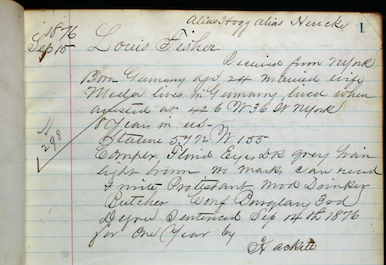 Alias Hogg Alias Neucke
1
1876
Sep 15 Louis Fisher
Received from N York
Born Germany age 24 married wife
lives in Germany lived when
arrested at 426 W 36 St N York
8 Years in us-
298
Stature 5.7 1/2 W 155
Complex Florid Eyes Dk grey hair
light brown no marks can read
& write Protestant Mod Drinker
Butcher Conf Burglary 3rd
Degree Sentenced Sep 14th 1876
for One Year by
Hackett